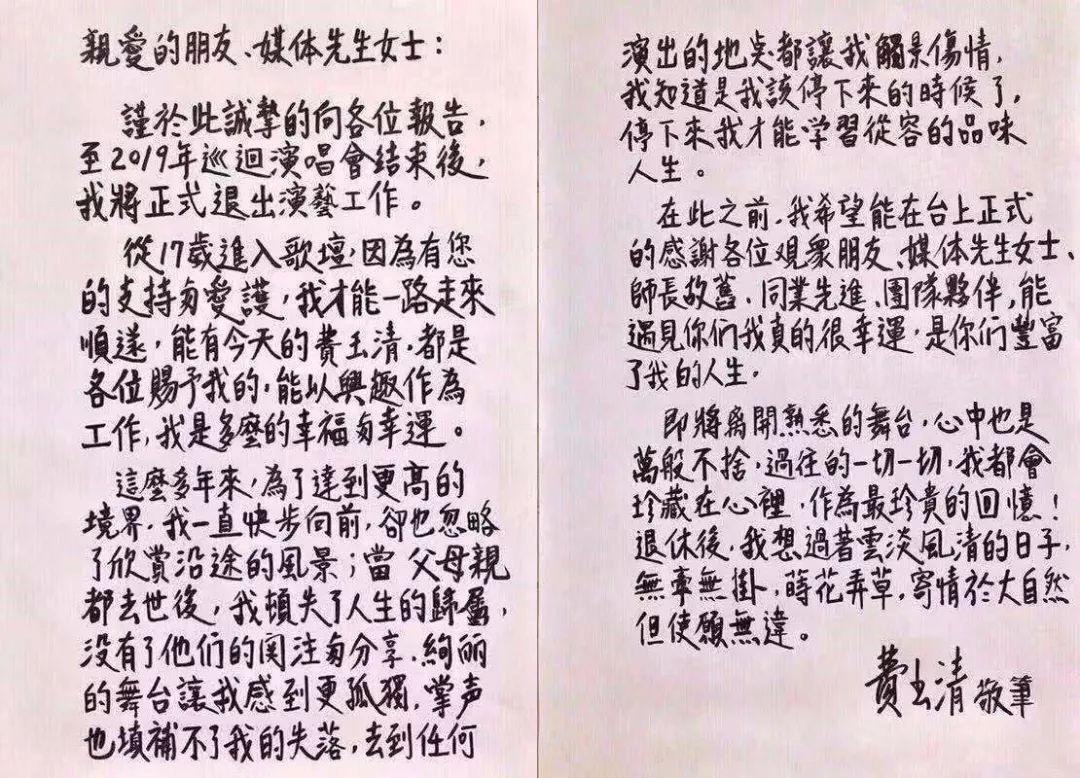 親愛的朋友、媒体先生女士：
謹於此誠摯的向各位報告，
至2019年巡迴演唱會結束後，
我將正式退出演藝工作。
從17歲進入歌壇，因為有您
的支持与愛護，我才能一路走來
順遂，能有今天的費玉清，都是
各位賜予我的，能以興趣作為
工作，我是多麼的幸福与幸運。
這麼多年來，為了達到更高的
境界，我一直快步向前，卻也忽略
了欣賞沿途的風景；當父母親
都去世後，我頓失了人生的歸屬，
没有了他们的関注与分享，絢丽
的舞台讓我感到更孤獨，掌声
也填補不了我的失落，去到任何
演出的地点都讓我觸景傷情，
我知道是我該停下來的時候了，
停下來我才能学習從容的品味
人生。
在此之前，我希望能在台上正式
的感謝各位观眾朋友、媒体先生女士、
師長故舊、同業先進、團隊夥伴，能
遇見你们我真的很幸運，是你们豐富
了我的人生。
即將离開熟悉的舞台，心中也是
萬般不捨，過往的一切一切，我都會
珍藏在心裡，作為最珍貴的回憶！
退休後，我想過著雲淡風清的日子，
無牽無掛，蒔花弄草，寄情於大自然
但使願無違。
費玉清 敬筆